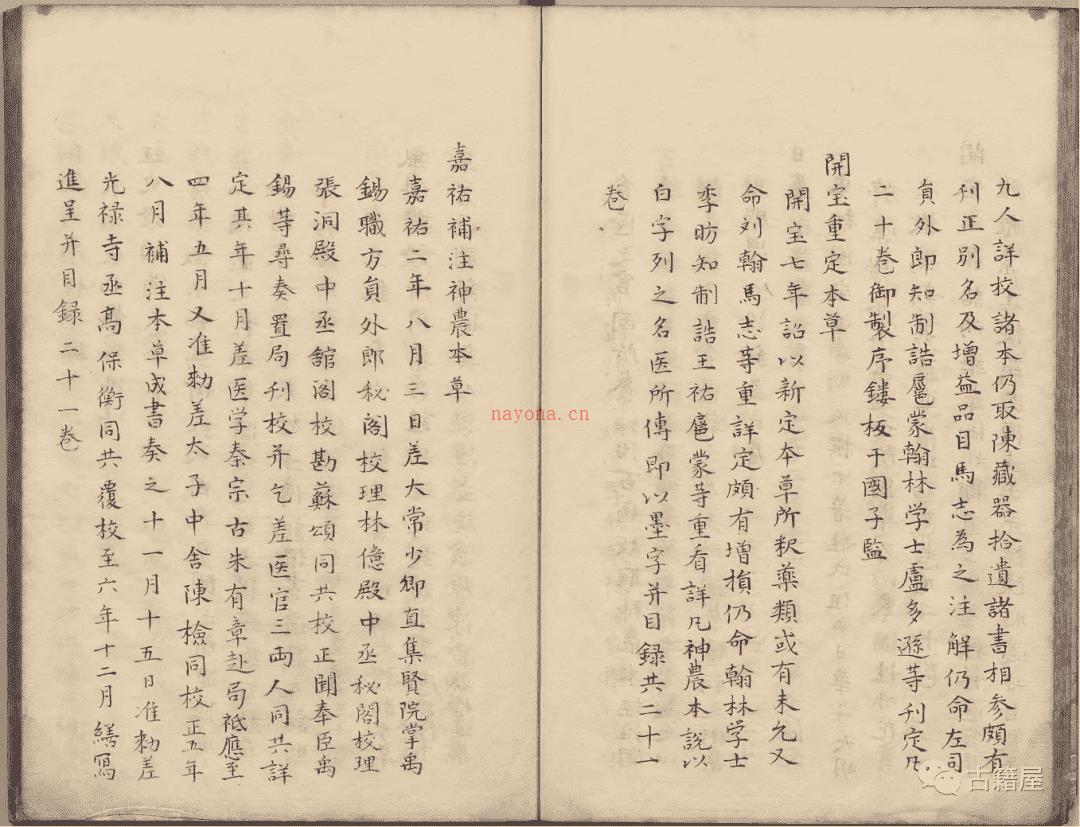 九人詳校諸本仍取陳藏器拾遺諸書相参頗有
刋正別名及增益品目馬志為之注解仍命左司
貟外郎知制誥扈蒙翰林学士盧多遜等刊定凡
二十卷御製序鏤板于國子監
開宝重定本草
開宝七年詔以新定本草所釈薬類或有未允又
命刘翰馬志等重詳定頗有增損仍命翰林学士
李昉知制誥王祐扈蒙等重看詳凡神農本說以
白字列之名医所傳即以墨字并目録共二十一
卷
嘉祐補注神農本草
嘉祐二年八月三日差大常少卿直集賢院掌禹
錫職方貟外郎秘阁校理林億殿中丞秘閣校理
張洞殿中丞舘阁校勘蘇頌同共校正聞奉臣禹
錫等尋奏置局刊校并乞差医官三両人同共詳
定其年十月差医学秦宗古朱有章赴局祗應至
四年五月又准勅差太子中舍陳檢同校正五年
八月補注本草成書奏之十一月十五日准勅差
光禄寺丞髙保衡同共覆校至六年十二月繕寫
進呈并目録二十一卷
nayona.cn
古籍屋